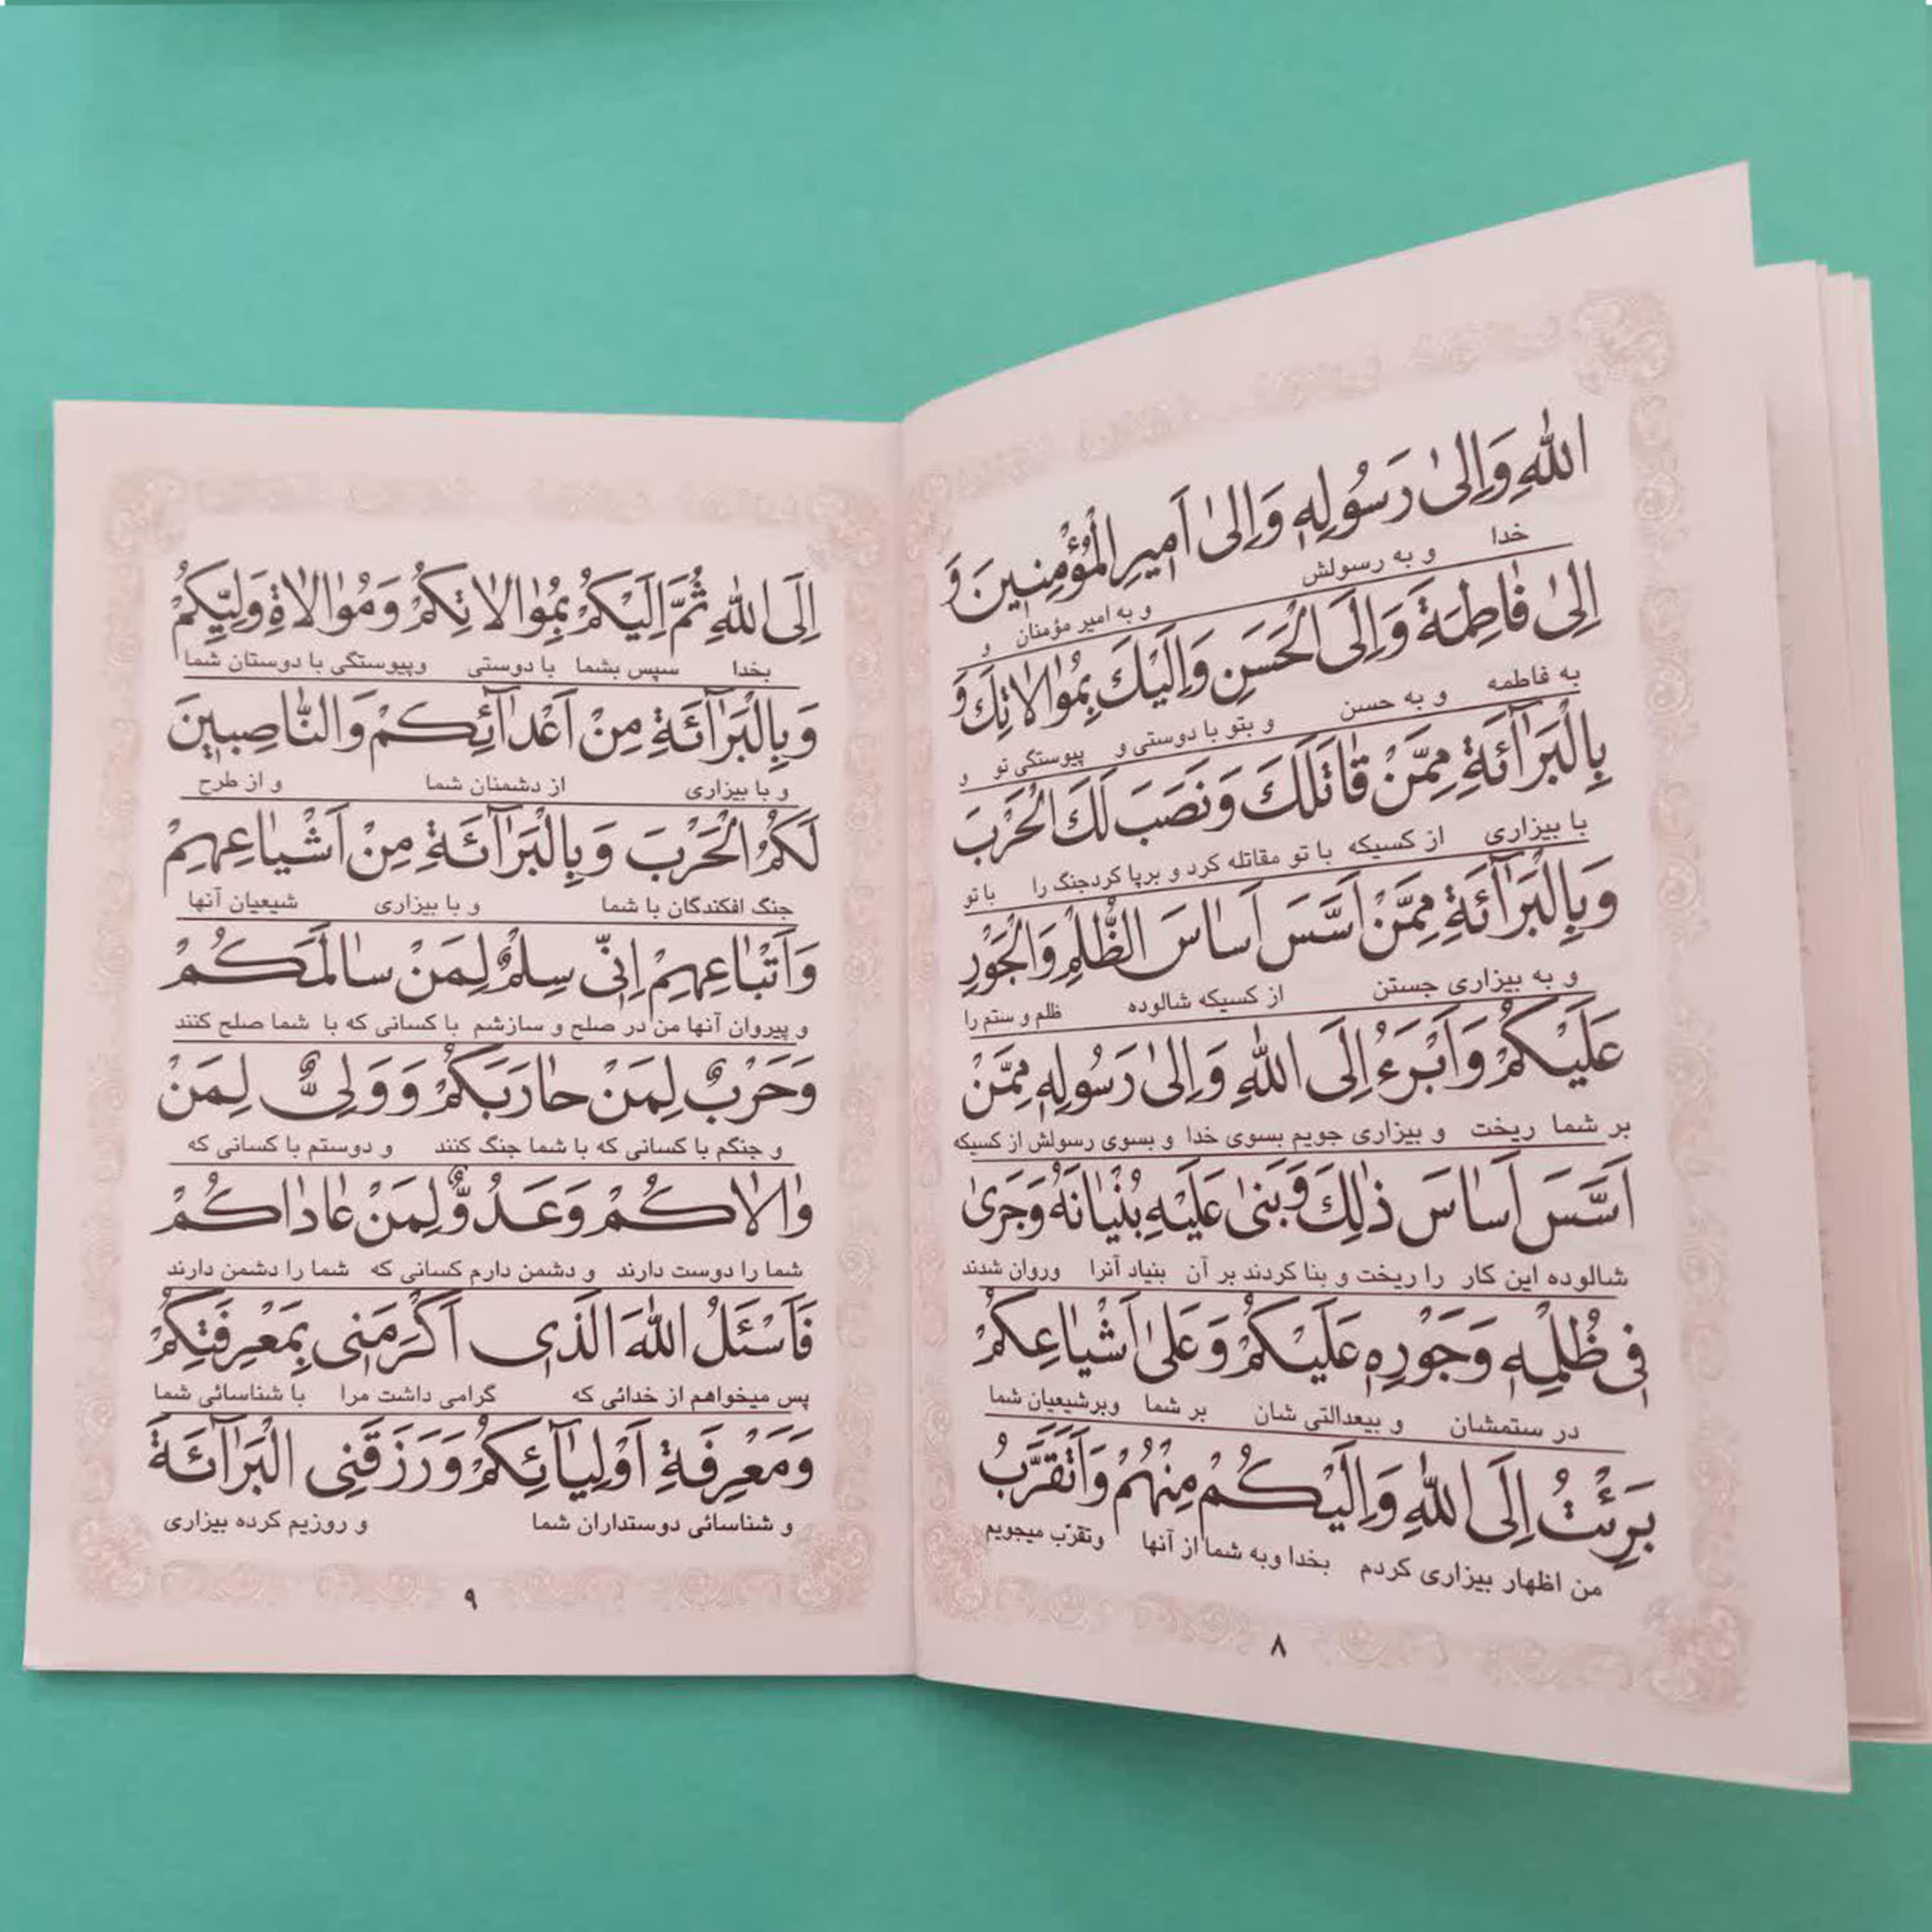 اللّٰهِ وَاِلىٰ رَسُولِهِ وَاِلىٰ اَميرِالْمُؤْمِنينَ وَ
خدا و به رسولش و به امیر مؤمنان و
اِلىٰ فٰاطِمَةَ وَاِلَى الْحَسَنِ وَاِلَيْكَ بِمُوٰالاٰتِكَ وَ
به فاطمه و به حسن و بتو با دوستی و پیوستگی تو و
بِالْبَرٰآئَةِ مِمَّنْ قٰاتَلَكَ وَنَصَبَ لَكَ الْحَرْبَ
با بیزاری از کسیکه با تو مقاتله کرد و برپا کردجنگ را با تو
وَبِالْبَرٰآئَةِ مِمَّنْ اَسَّسَ اَسٰاسَ الظُّلْمِ وَالْجَوْرِ
و به بیزاری جستن از کسیکه شالوده ظلم و ستم را
عَلَيْكُمْ وَاَبْرَءُ اِلَى اللّٰهِ وَاِلىٰ رَسُولِهِ مِمَّنْ
بر شما ریخت و بیزاری جویم بسوی خدا و بسوی رسولش از کسیکه
اَسَّسَ اَسٰاسَ ذٰلِكَ وَبَنىٰ عَلَيْهِ بُنْيٰانَهُ وَجَرىٰ
شالوده این کار را ریخت و بنا کردند بر آن بنیاد آنرا وروان شدند
فى ظُلْمِهِ وَجَوْرِهِ عَلَيْكُمْ وَعَلىٰ اَشْيٰاعِكُمْ
در ستمشان و بیعدالتی شان بر شما وبرشیعیان شما
بَرِئْتُ اِلَى اللّٰهِ وَاِلَيْكُمْ مِنْهُمْ وَاَتَقَرَّبُ
من اظهار بیزاری کردم بخدا وبه شما از آنها وتقرّب میجویم
۸
اِلَى اللّٰهِ ثُمَّ اِلَيْكُمْ بِمُوٰالاٰتِكُمْ وَمُوٰالاٰةِ وَلِيِّكُمْ
بخدا سپس بشما با دوستی وپیوستگی با دوستان شما
وَبِالْبَرٰآئَةِ مِنْ اَعْدٰآئِكُمْ وَالنّٰاصِبينَ
و با بیزاری از دشمنان شما و از طرح
لَكُمُ الْحَرْبَ وَبِالْبَرٰآئَةِ مِنْ اَشْيٰاعِهِمْ
جنگ افکندگان با شما و با بیزاری شیعیان آنها
وَاَتْبٰاعِهِمْ اِنّى سِلْمٌ لِمَنْ سٰالَمَكُمْ
و پیروان آنها من در صلح و سازشم با کسانی که با شما صلح کنند
وَحَرْبٌ لِمَنْ حٰارَبَكُمْ وَوَلِىٌّ لِمَنْ
و جنگم با کسانی که با شما جنگ کنند و دوستم با کسانی که
وٰالاٰكُمْ وَعَدُوٌّ لِمَنْ عٰادٰاكُمْ
شما را دوست دارند و دشمن دارم کسانی که شما را دشمن دارند
فَاَسْئَلُ اللّٰهَ الَّذى اَكْرَمَنى بِمَعْرِفَتِكُمْ
پس میخواهم از خدائی که گرامی داشت مرا با شناسائی شما
وَمَعْرِفَةِ اَوْلِيٰآئِكُمْ وَرَزَقَنِى الْبَرٰآئَةَ
و شناسائی دوستداران شما و روزیم کرده بیزاری
۹